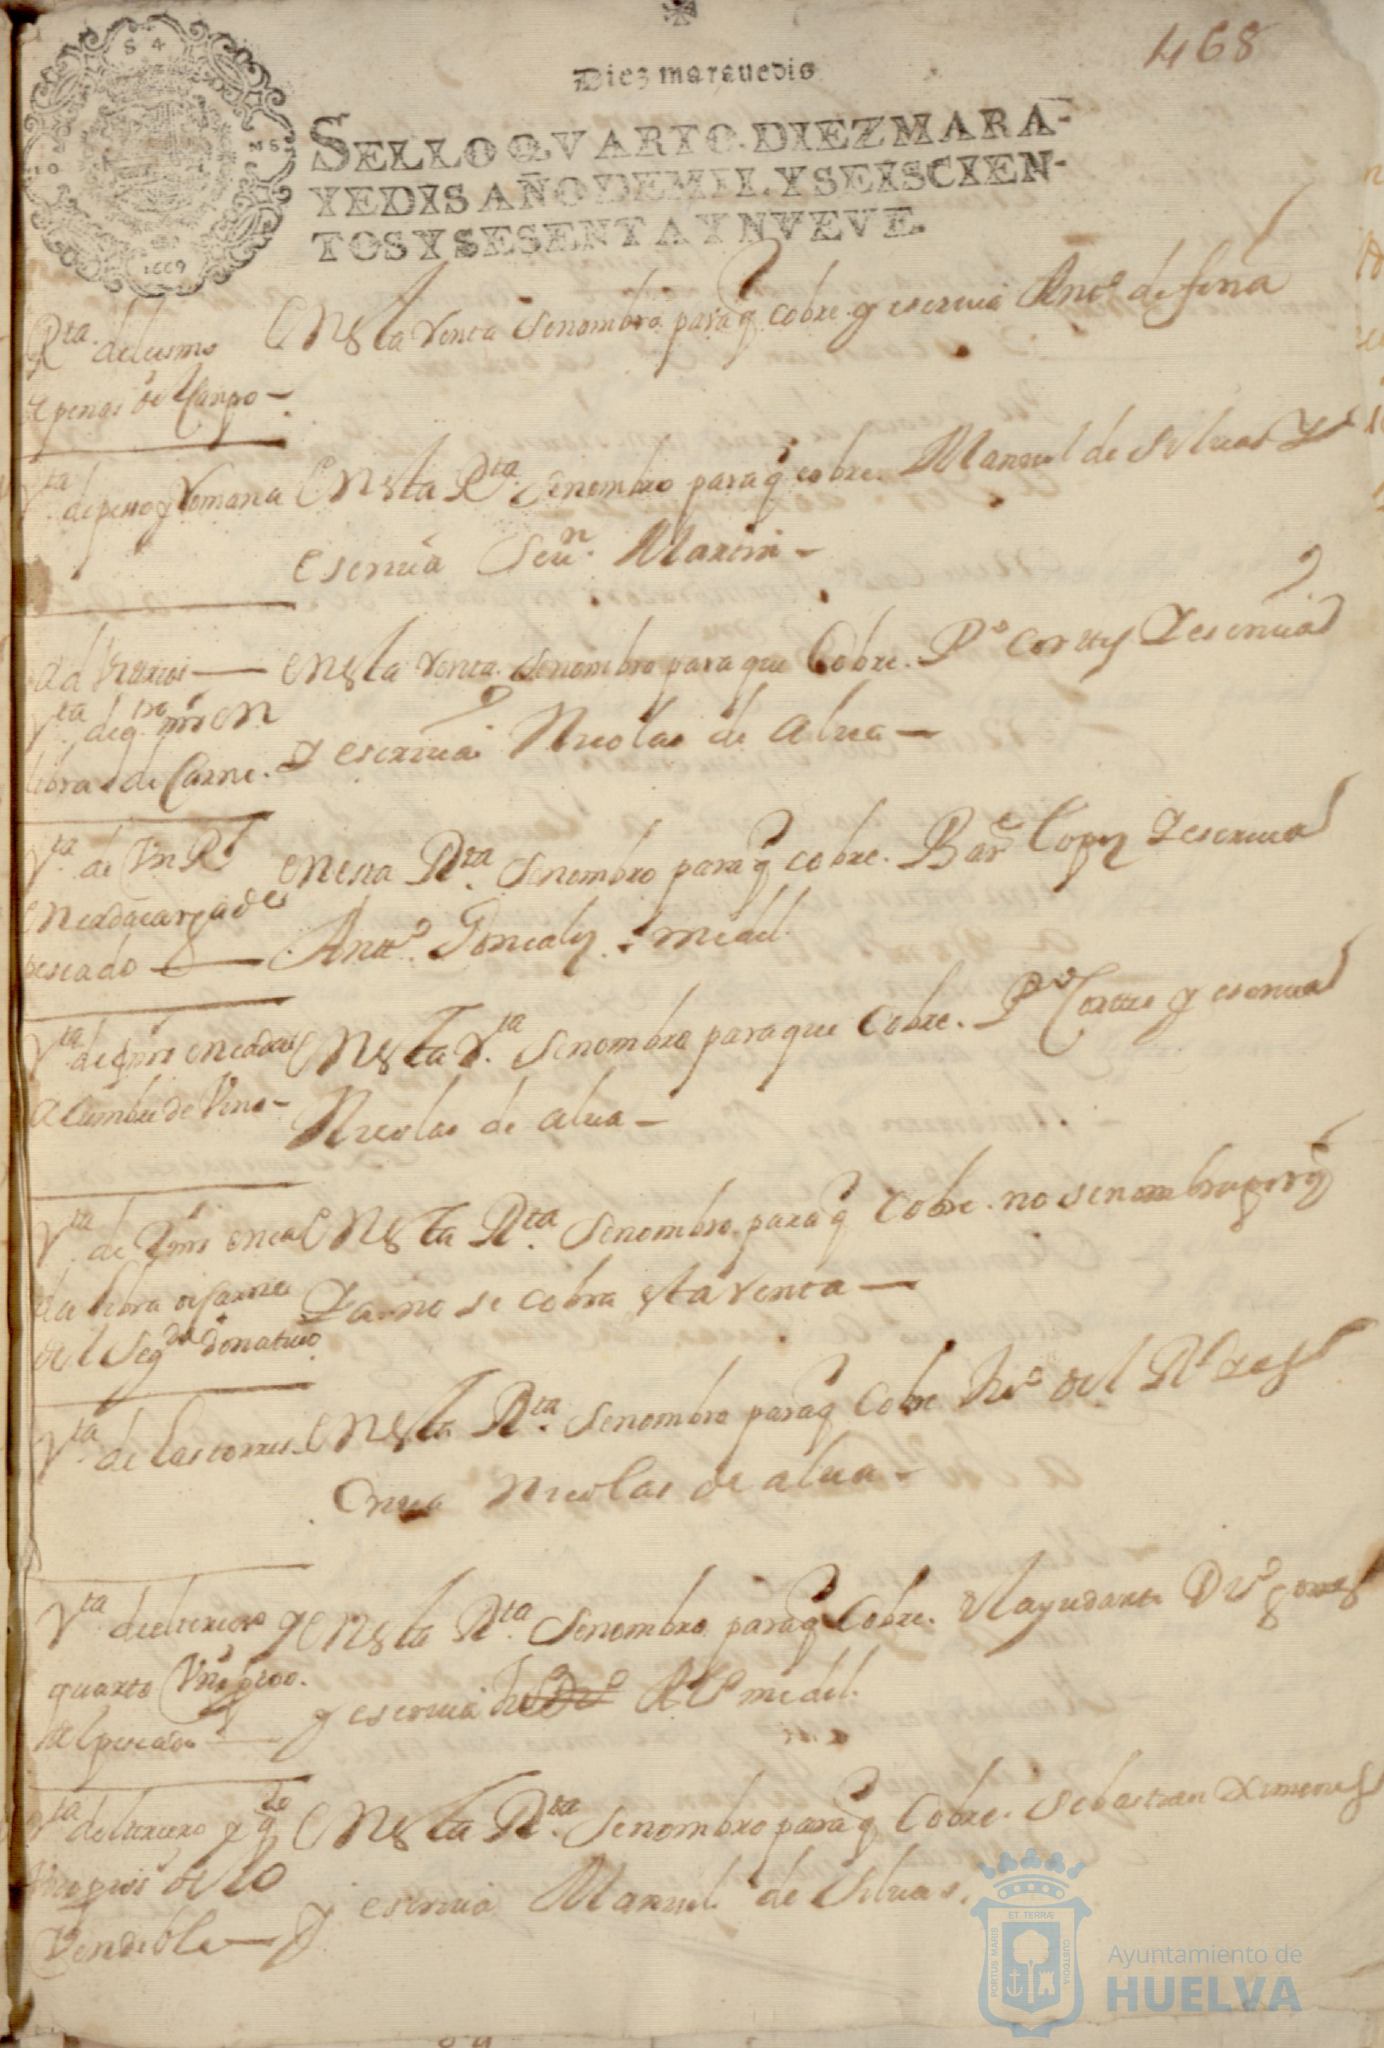 468
Diez maravedis
SELLO QVARTO. DIEZ MARA-
VEDIS AÑO DE MIL. Y SEISCIEN-
TOS Y SESENTA Y NVEVE.
1669
Rta. del
de penas del Canpo -
en esta renta se nombro para q cobre y escriua Anto de
rta de peso y Romana
en esta Rta. se nombro para q cobre. Manuel de Siluas y
escriua Seun. Martin -
en esta renta. se nombro para que Cobre. Po Cortes Y escriua
Y escriua Nicolas de alua -
rta de qro mrs en
libra de Carne.
rta de Vn Rl
en cada carga de
pescado
en esta Rta. se nombro para q cobre. Barme Lopez Y escriua
Antto. Goncales. medel.
rta de mrs en cada
acumbre de Vino -
en esta rta. se nombro para que Cobre. Po Cortes y escriua
Nicolas de alua -
rta de 2 mrs en ca
da libra de Carne
del Segdo donatiuo
en esta Rta. se nombro para q Cobre. no se nombra porq
Ya no se cobra esta renta -
rta de las torres
en esta Rta. se nombro para q Cobre del Rl Y es
criua Nicolas de alua -
rta del tercero y
quarto Vno por
del pescado
en esta Rta. se nombro para q Cobre. el ayudante
y escriua medel.
rta del tercero y qto
de lo
Vendible
en esta Rta. se nombro para q Cobre. Sebastian Ximenes
y escriua Manuel de Siluas.
PORTUS MARIS
ET TERRÆ
CUSTODIA
Ayuntamiento de
HUELVA